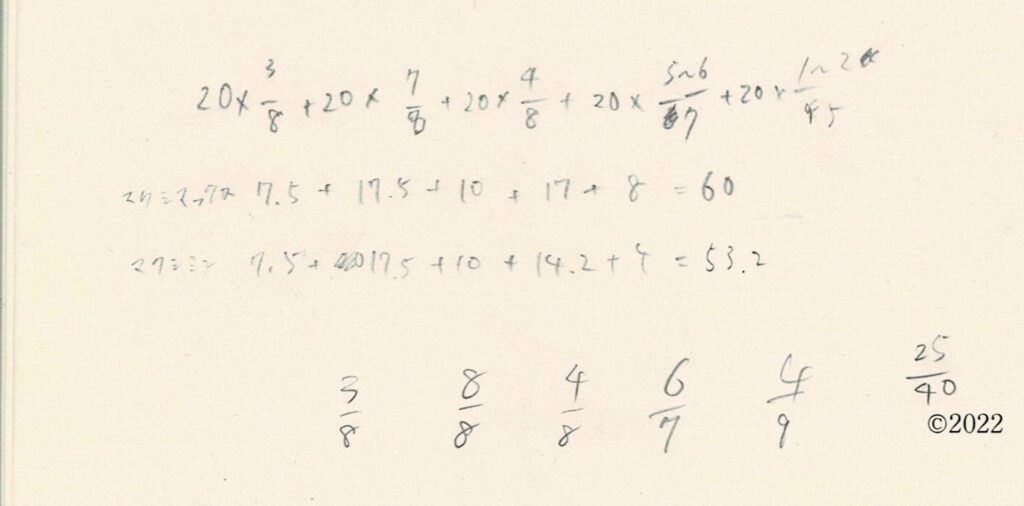 20×3/8+20×7/8+20×4/8+20×5~6/7+20×1~2/5
マクシマックス 7.5+17.5+10+17+8=60
マクシミン 7.5+17.5+10+14.2+4=53.2
3/8 8/8 4/8 6/7 4/9 25/40
©2022